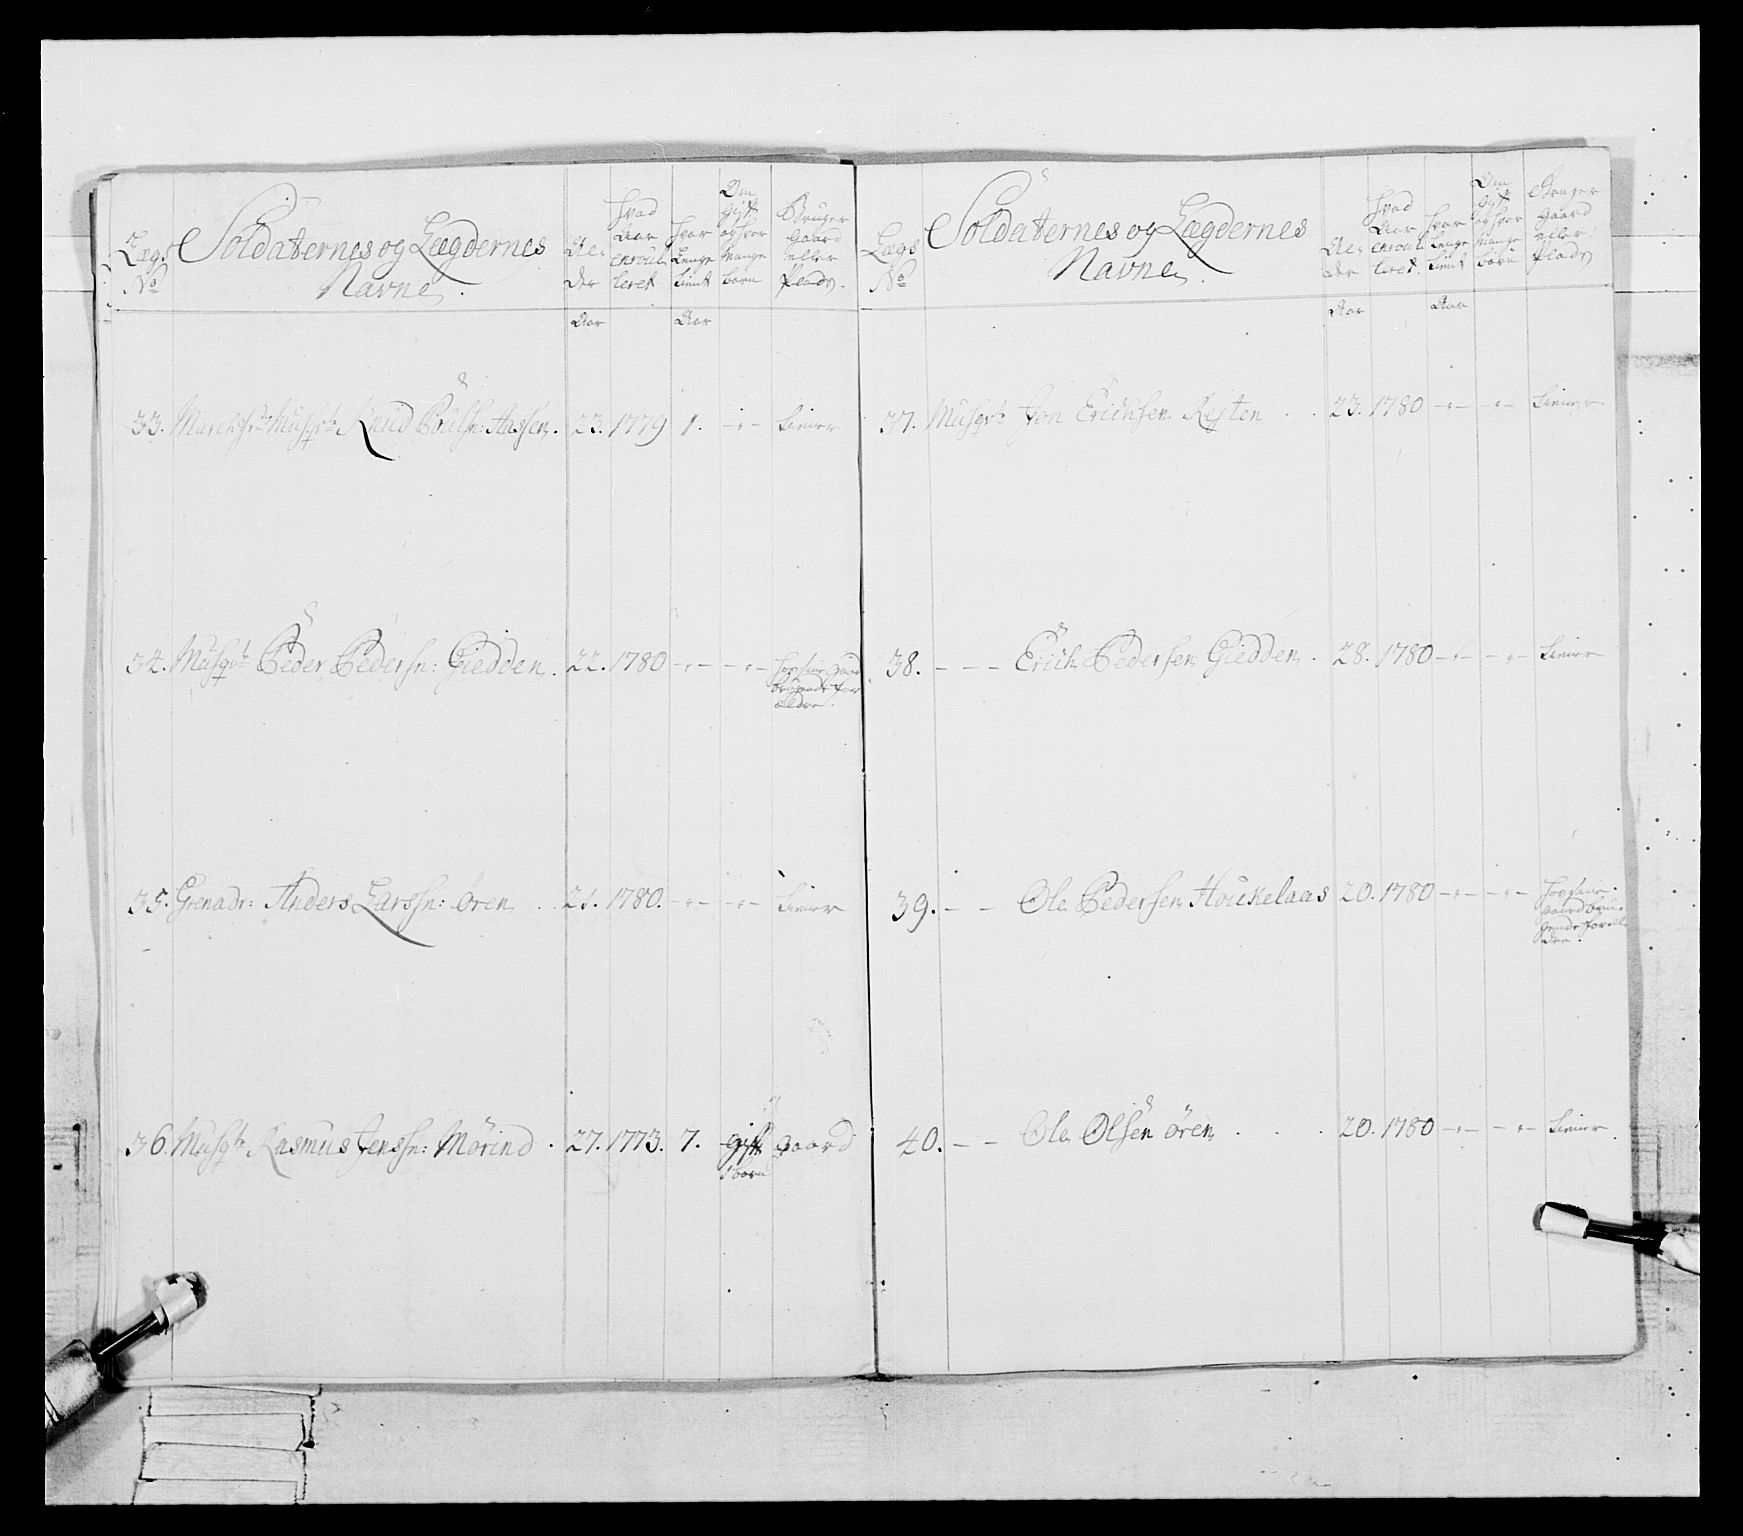 Lægs No
Soldaternes og Lægdernes Navne
Al-der
Hvad Aar enroulleret
Hvor Lenge tient
Om gift og hvor Mange børn
Bruger Gaard eller Plads
Aar
Aar
33. Musqt: Knud Poulsn: Aassen. 23. 1779 1. -"- tiener
34. Musqt: Peder Pedersn: Giedden. 22. 1780 -"- -"- hos sine gaard
brugende for
ældre.
35. Grenadr: Anders Larssn: ören 21. 1780. -"- -"- tiener
36. Musqt: Rasmus Jenssn: Mörind. 27. 1773. 7. gift gaard
1 barn
Lægs No
Soldaternes og Lægdernes Navne
Al-der
Hvad Aar enroulleret
Hvor Lenge tient
Om gift og hvor Mange børn
Bruger Gaard eller Plads
Aar
Aar
37. Musqt: Jon Erichsen Resten 23. 1780 -"- -"- tiener
38. - - - Erich Pedersen Giedden. 28. 1780 -"- -"- tiener
39. - - Ole Pedersen Houkelaas 20. 1780 -"- -"- hos sine
gaard bru-
gende foræl
dre.
40. - - Ole Olsen ören 20. 1780 -"- -"- tiener